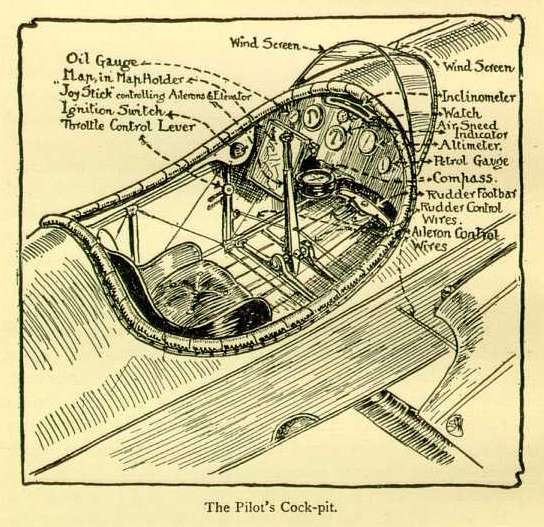 Wind Screen
Oil Gauge
Map, in Map Holder
Joy Stick controlling Ailerons & Elevator
Ignition Switch
Throttle Control Lever
Wind Screen
Inclinometer
Watch
Air Speed
Indicator
Altimeter.
Petrol Gauge
Compass.
Rudder Footbar
Rudder Control
Wires.
Aileron Control
Wires
The Pilot's Cock-pit.